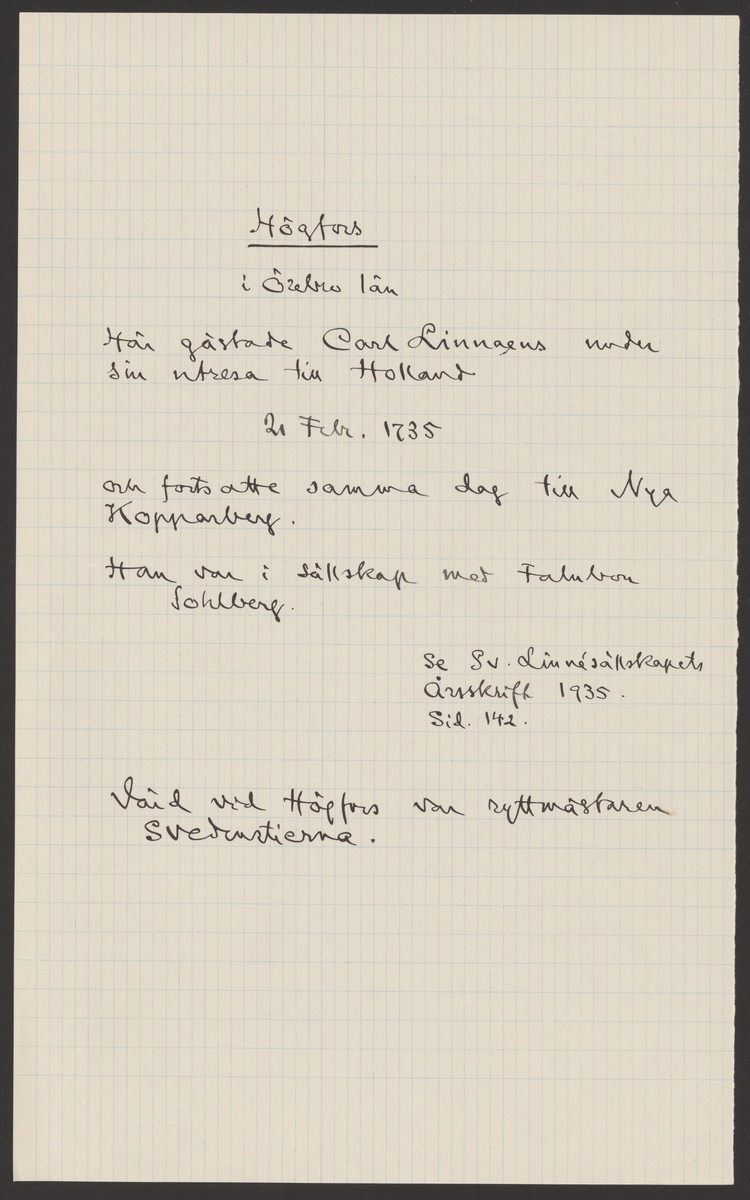 Högfors
i Örebro län
Här gästade Carl Linnaeus under
sin utresa till Holland
21 Febr. 1735
och fortsatte samma dag till Nya
Kopparberg.
Han var i sällskap med Falubon
Sohlberg.
Se Sv. Linnésällskapets
Årsskrift 1935.
Sid. 142.
Värd vid Högfors var ryttmästaren
Svedenstierna.